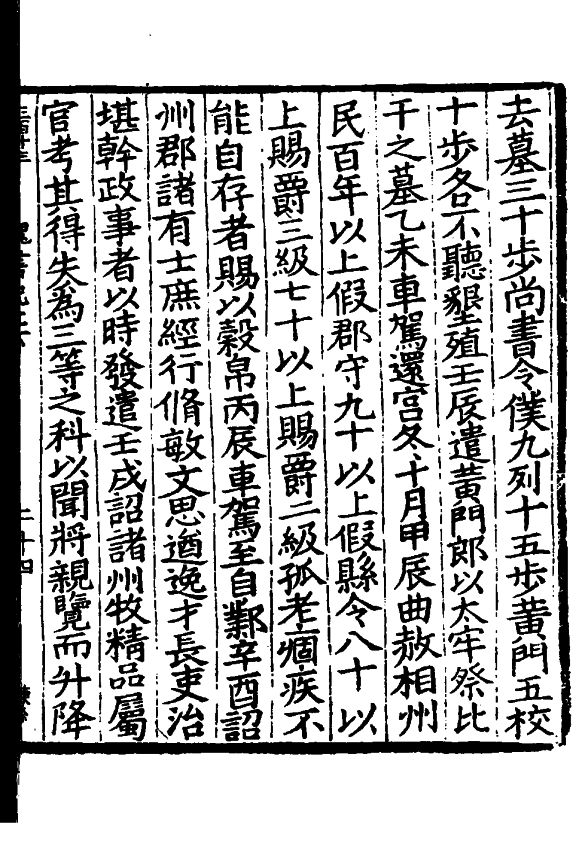 去墓三十步尚書令僕九列十五步黃門五校
十步各不聽墾殖壬辰遣黃門郎以太牢祭比
干之墓乙未車駕還宮冬十月甲辰曲赦相州
民百年以上假郡守九十以上假縣令八十以
上賜爵三級七十以上賜爵二級孤老痼疾不
能自存者賜以穀帛丙辰車駕至自鄴辛酉詔
州郡諸有士庶經行脩敏文思遒逸才長吏治
堪幹政事者以時發遣壬戌詔諸州牧精品屬
官考其得失為三等之科以聞將親覽而升降